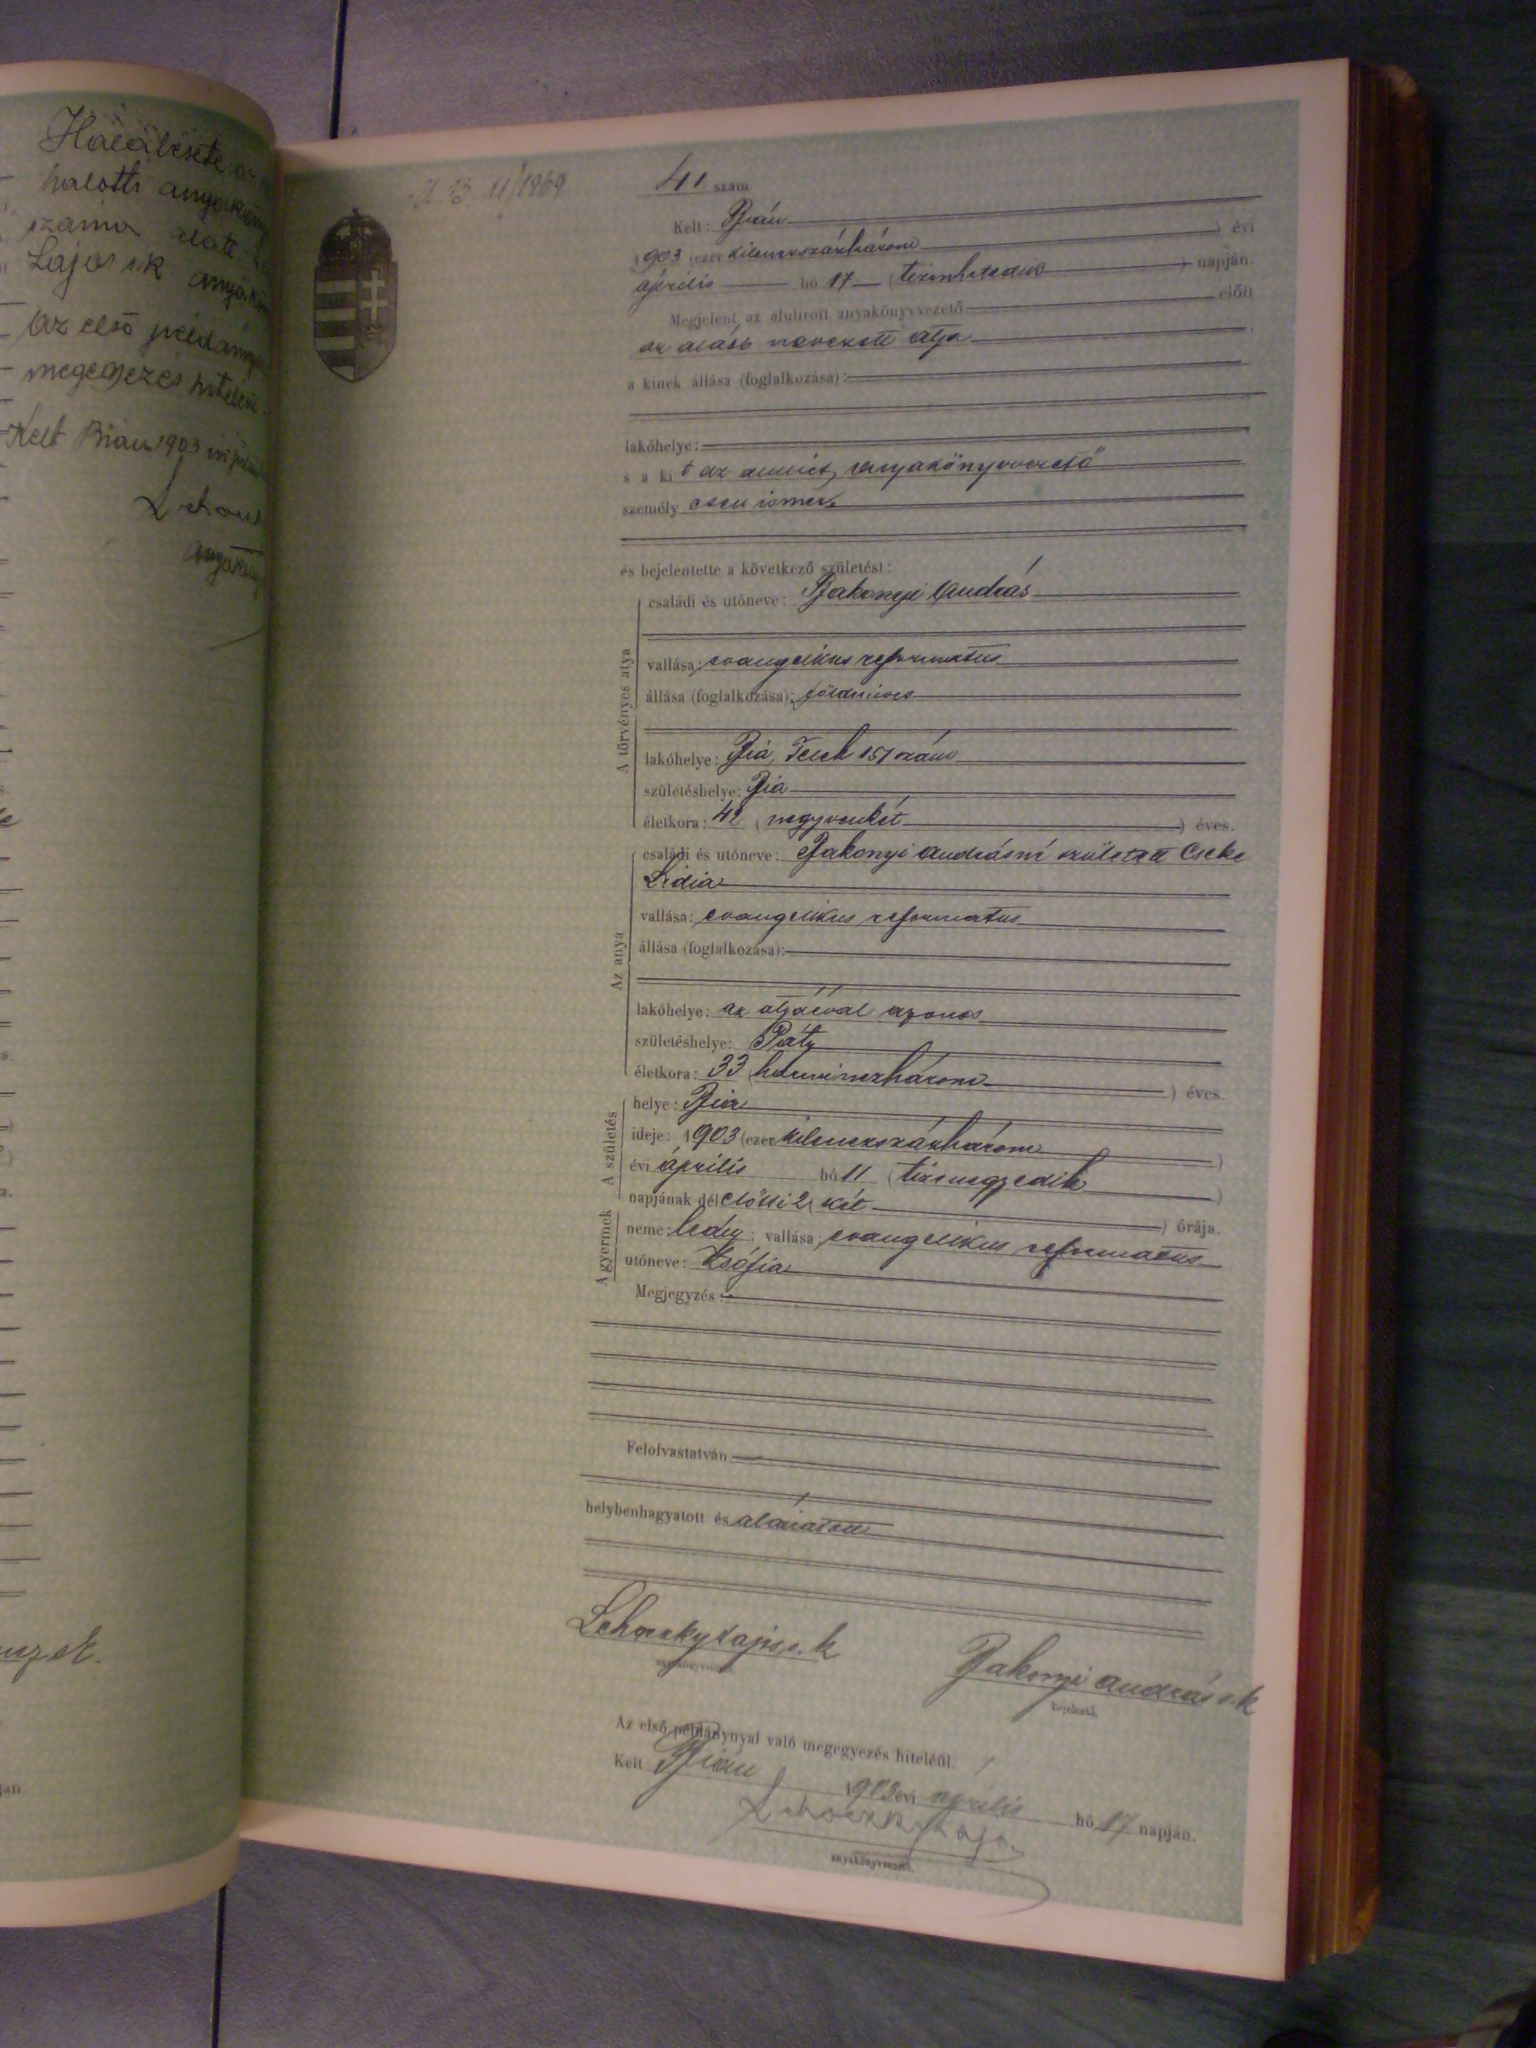 Halálesete a
halotti anyakönyv
száma alatt
Lajos s.k. anyak
Az első példány
megegyezés hiteléül
Kelt Bián 1903 évi
anyakönyv
11/1969
41 szám
Kelt: Bián
1903 (ezer kilenczszázhárom ) évi
április hó 17 ( tizenhetedik ) napján.
Megjelent az alulirott anyakönyvvezető előtt
az alább nevezett atya
a kinek állása (foglalkozása):
lakóhelye:
s a kit az anyakönyvvezető
személyesen ismer,
és bejelentette a következő születést:
A törvényes atya
családi és utóneve: Bakonyi András
vallása: evangelikus reformatus
állása (foglalkozása): földmives
lakóhelye: Bia, Telek 151 szám
születéshelye: Bia
életkora: 42 ( negyvenkét ) éves.
Az anya
családi és utóneve: Bakonyi Andrásné született Cseke
Lidia
vallása: evangelikus reformatus
állása (foglalkozása):
lakóhelye: az atyáéval azonos
születéshelye: Páty
életkora: 33 ( harminczhárom ) éves.
A születés
helye: Bia
ideje: 1903 (ezer kilenczszázhárom )
évi április hó 11 ( tizenegyedik )
napjának délelőtti 2 ( két ) órája.
A gyermek
neme: leány; vallása: evangelikus reformatus
utóneve: Zsófia
Megjegyzés:
Felolvastatván
helybenhagyatott és aláiratott
Lehoczky Lajos s. k
anyakönyvvezető.
Bakonyi András s. k
bejelentő.
Az első példánynyal való megegyezés hiteléül.
Kelt Bián 1903 évi április hó 17 napján.
Lehoczky Lajos
anyakönyvvezető.